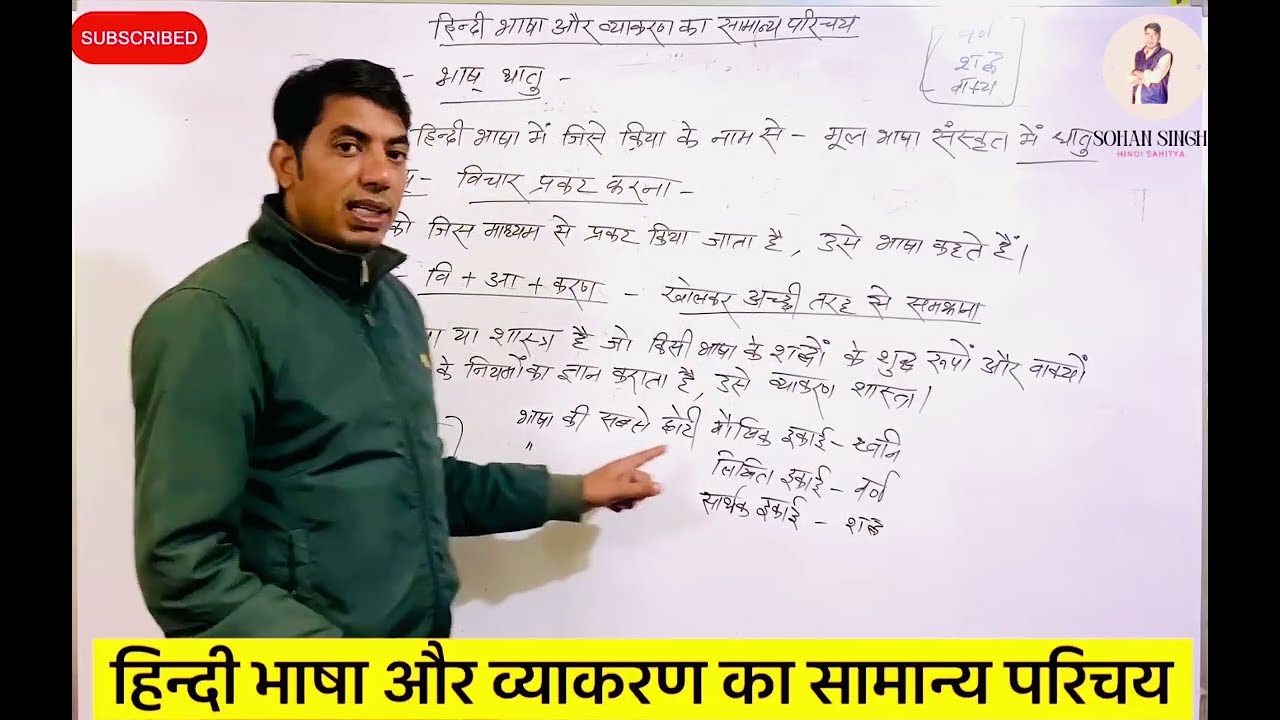 SUBSCRIBED
हिन्दी भाषा और व्याकरण का सामान्य परिचय
वर्ण
शब्द
वाक्य
- भाष् धातु -
हिन्दी भाषा में जिसे क्रिया के नाम से - मूल भाषा संस्कृत में धातु
SOHAN SINGH
HINDI SAHITYA
- विचार प्रकट करना -
को जिस माध्यम से प्रकट किया जाता है, उसे भाषा कहते हैं।
- वि + आ + करण - खोलकर अच्छी तरह से समझाना
या शास्त्र है जो किसी भाषा के शब्दों के शुद्ध रूपों और वाक्यों
के नियमों का ज्ञान कराता है, उसे व्याकरण शास्त्र।
भाषा की सबसे छोटी मौखिक इकाई - ध्वनि
" लिखित इकाई - वर्ण
सार्थक इकाई - शब्द
हिन्दी भाषा और व्याकरण का सामान्य परिचय